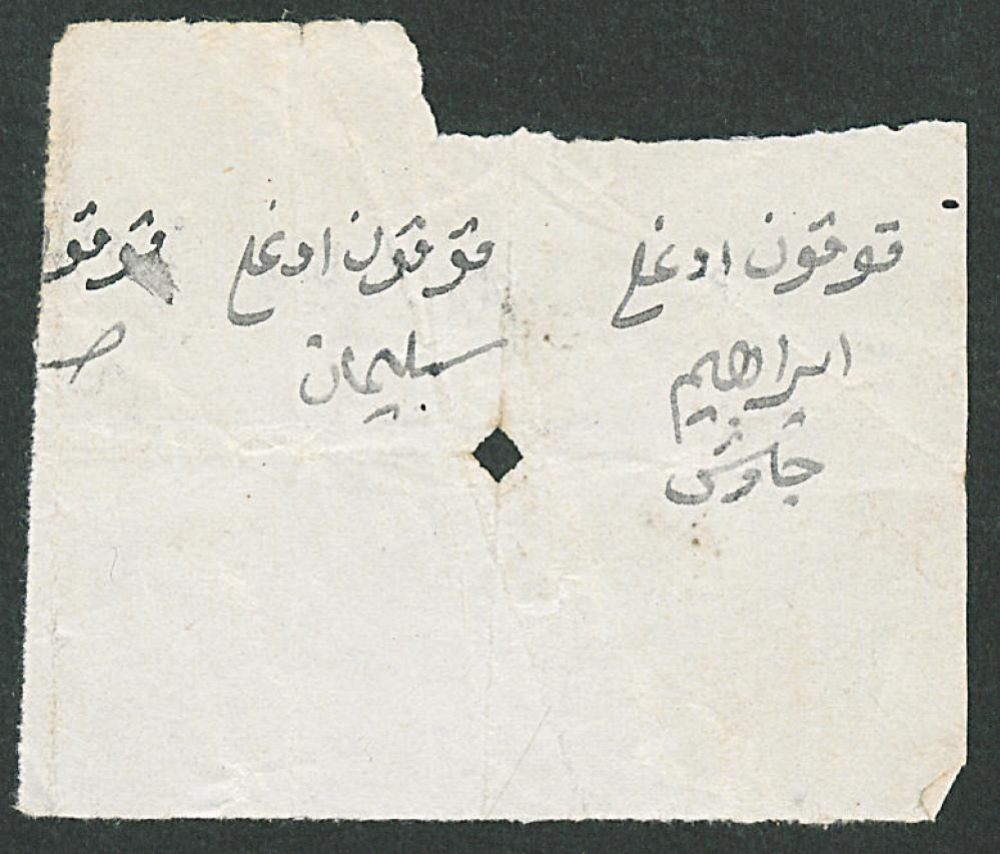 قوقون اوغلی
ابراهیم
چاوش
قوقون اوغلی
سلیمان
قوقو